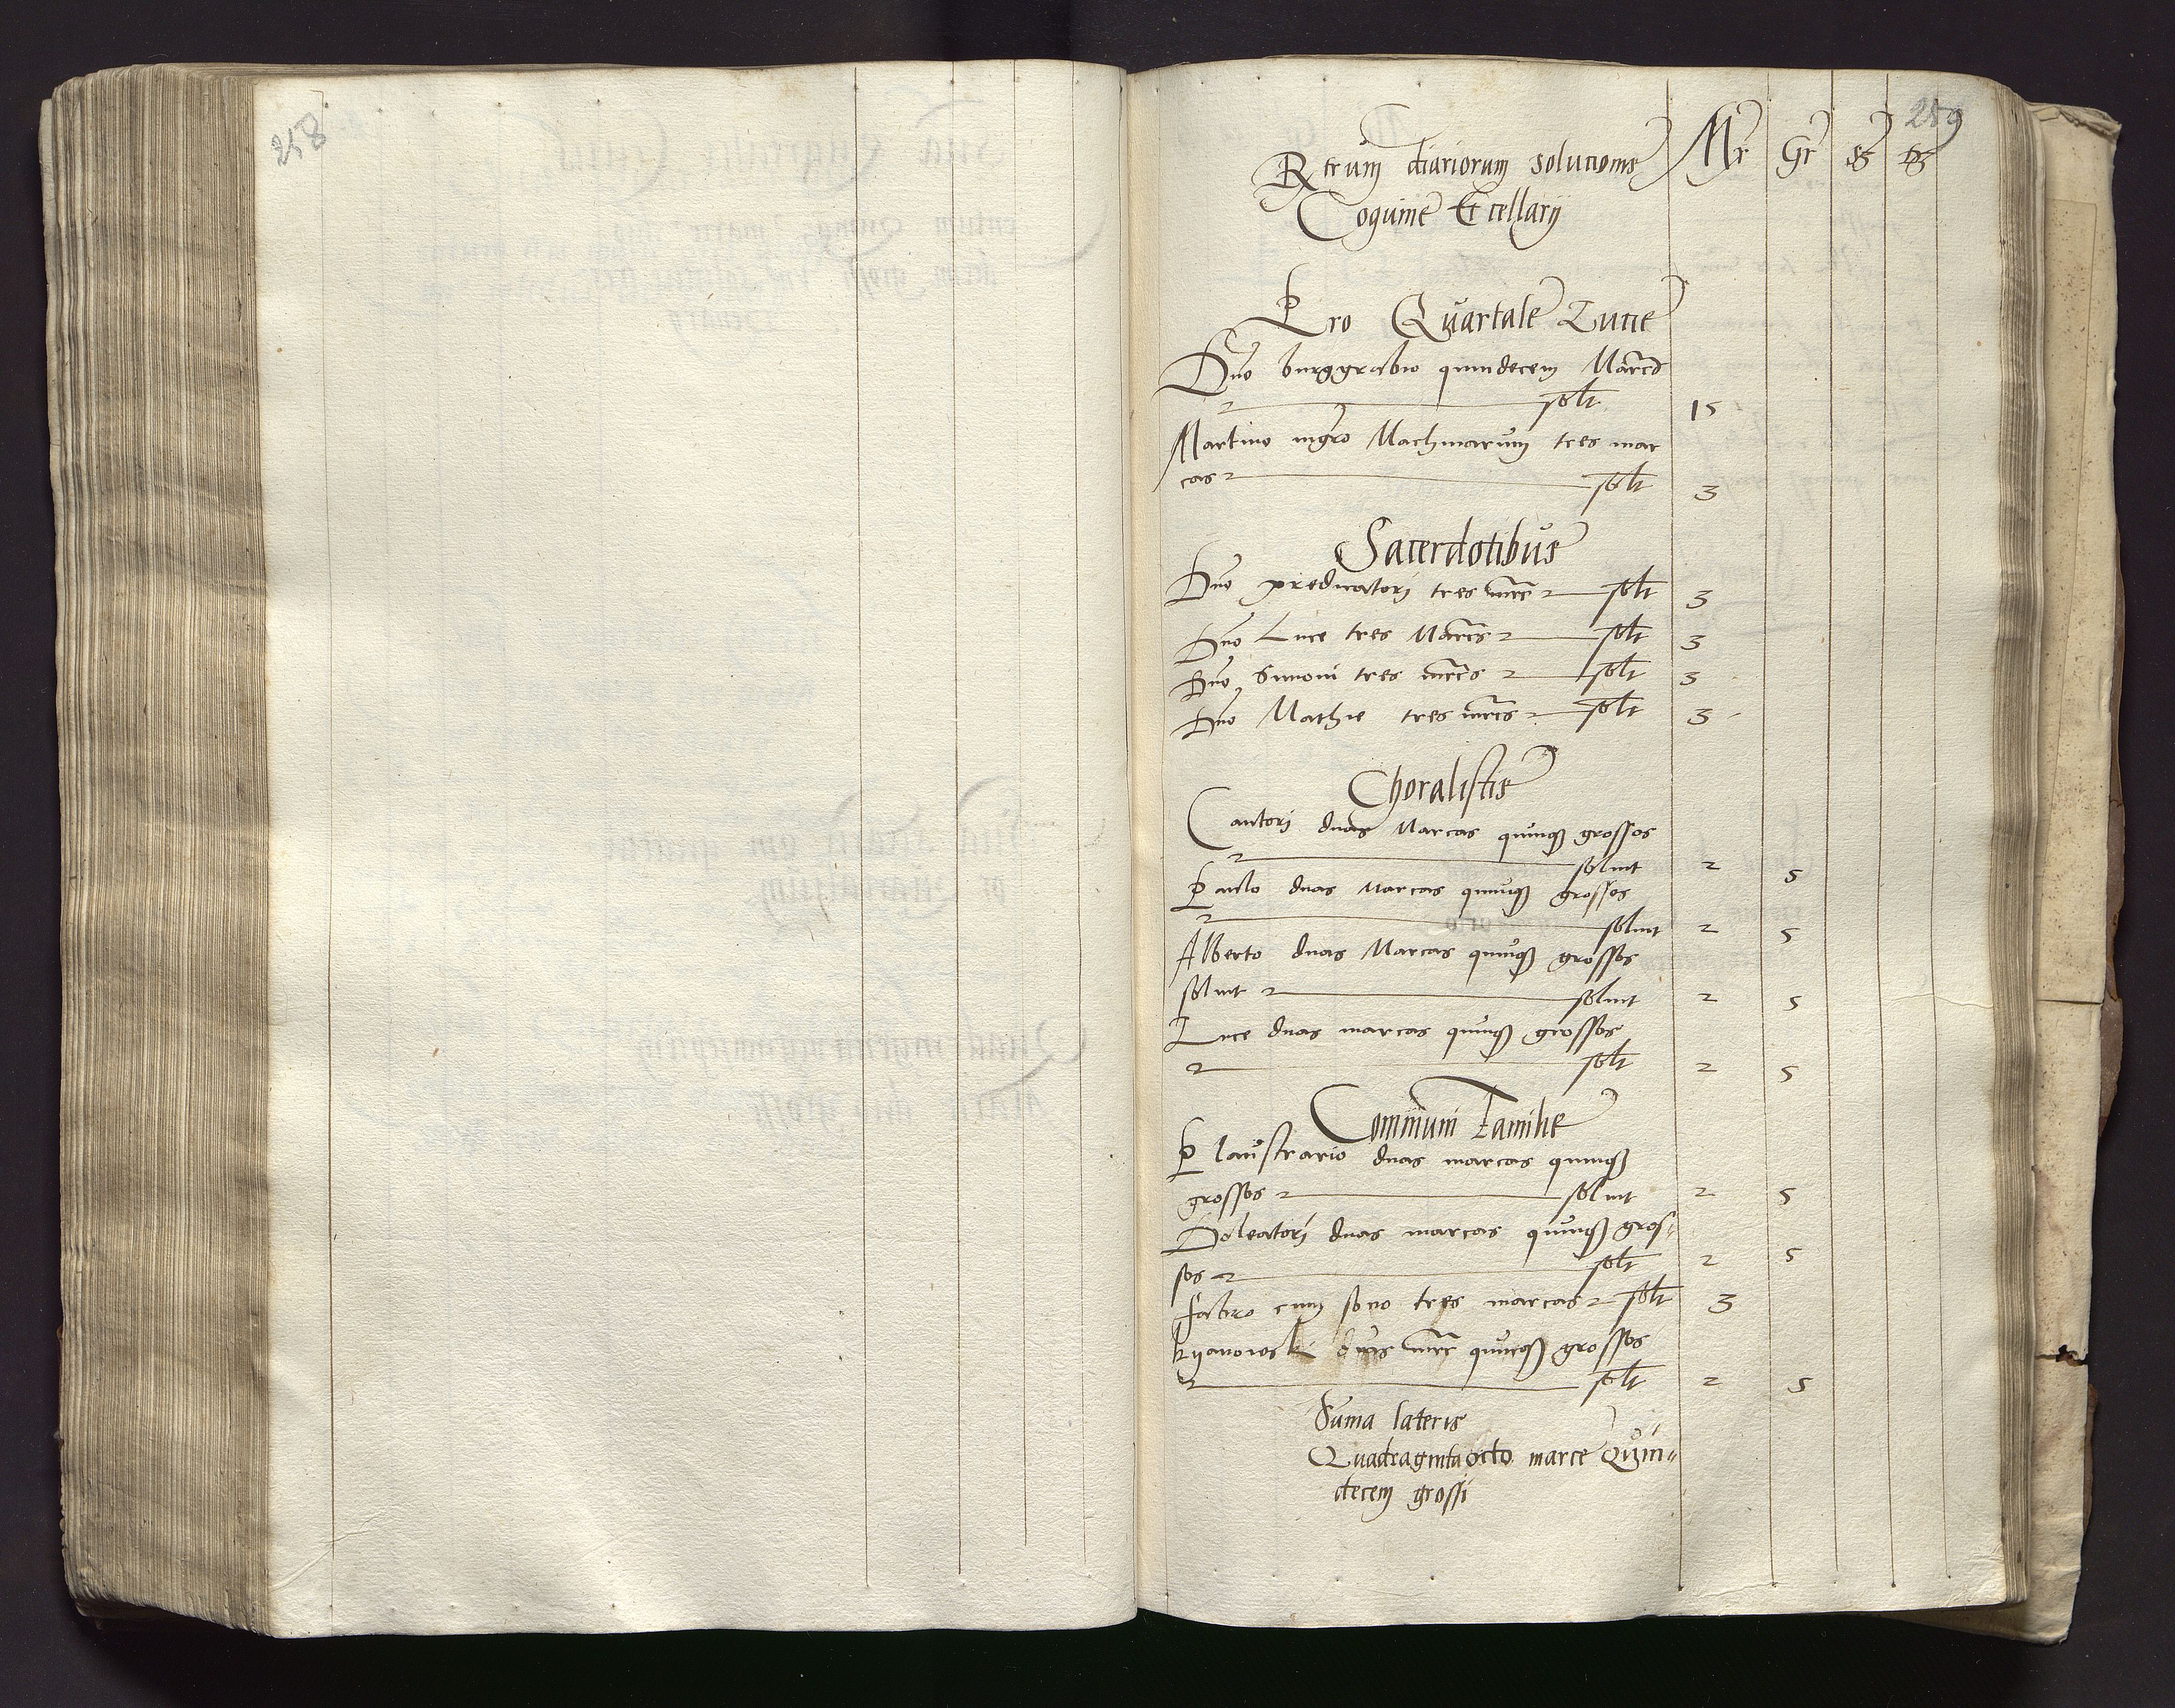 258
259
Rtrum diariorum solucionis Mr Gr
Coquine Et cellarij
Pro Quartale Lucie
Dno burggrabio quindecem Marcas
solt 15
Martino nigro Machinarum tres mar
cas solt 3
Sacerdotibus
Dno predicatorj tres mrc solt 3
Dno Luce tres Marcs solt 3
Dno Simoni tres mrcs solt 3
Dno Mathie tres mrcs solt 3
Choralistis
Cantorj duas Marcas quinq grossos
soluit 2 5
Paulo duas Marcas quinq grossos
soluit 2 5
Alberto duas Marcas quinq grossos
soluit soluit 2 5
Luce duas marcas quinq grossos
solt 2 5
Communi Familie
Plaustrario duas marcas quinq
grossos soluit 2 5
Doleatorj duas marcas quinq gros
sos solt 2 5
Fabro cum socio tres marcas solt 3
kyanowsk duas mrc quinq grossos
solt 2 5
Suma lateris
Quadragintaocto marce Quin
decem grossi